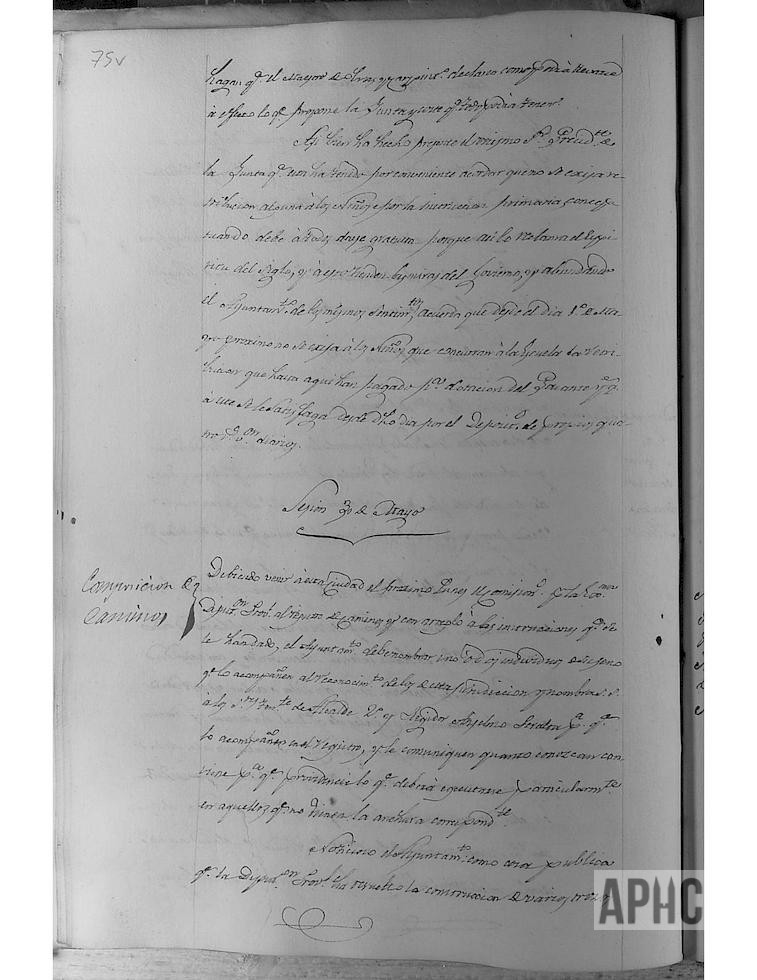 75v
hagan qe. el Mayor de obras y carpinto. declaren como podrá llevarse
á efecto lo qe. propone la Junta y coste qe. todo podrá tener.
Asi bien ha hecho presente el mismo Sr. Presidte. de
la Junta qe. esta ha tenido por conveniente acordar que no se exija re-
tribucion alguna á los Niños por la instruccion primaria, concep-
tuando debe á todos darse gratuita porque asi lo reclama el Espi-
ritu del Siglo, y á eso tienden las miras del Govierno, y abundando
el Ayuntamto. de los mismos sentimtos. acuerda que desde el dia 1o. de Ma-
yo proximo no se exija á los Niños que concurran á la Escuela la retri-
bucion que hasta aqui han pagado pa. dotacion del Pasante y qe.
á este se le satisfaga desde dho dia por el Deposito. de propios qua-
tro rs. von. diarios.
Sesion 20 de Mayo
Composicion de
Caminos
Debiendo venir á esta Ciudad el proximo Lunes el comisiondo. pr. la Exma.
Diputon. Provl. al registro de caminos y con arreglo á las instrucciones qe. se
le han dado, el Ayuntamto. debe nombrar uno ó dos individuos de su seno
qe. lo acompañen al reconocimto. de los de esta jurisdiccion y nombra
á los Sres. Tente. de Alcalde 2o. y Regidor Anselmo pa. qe.
lo acompañen en el registro, y le comuniquen quanto conozcan con-
viene pa. qe. providencie lo qe. deberá egecutarse particularmte.
en aquellos qe. no tienen la anchura correspondte.
Noticioso el Ayuntamto. como cosa publica
qe. la Diputon. Provl. ha resuelto la construccion de varios trozos
APHC